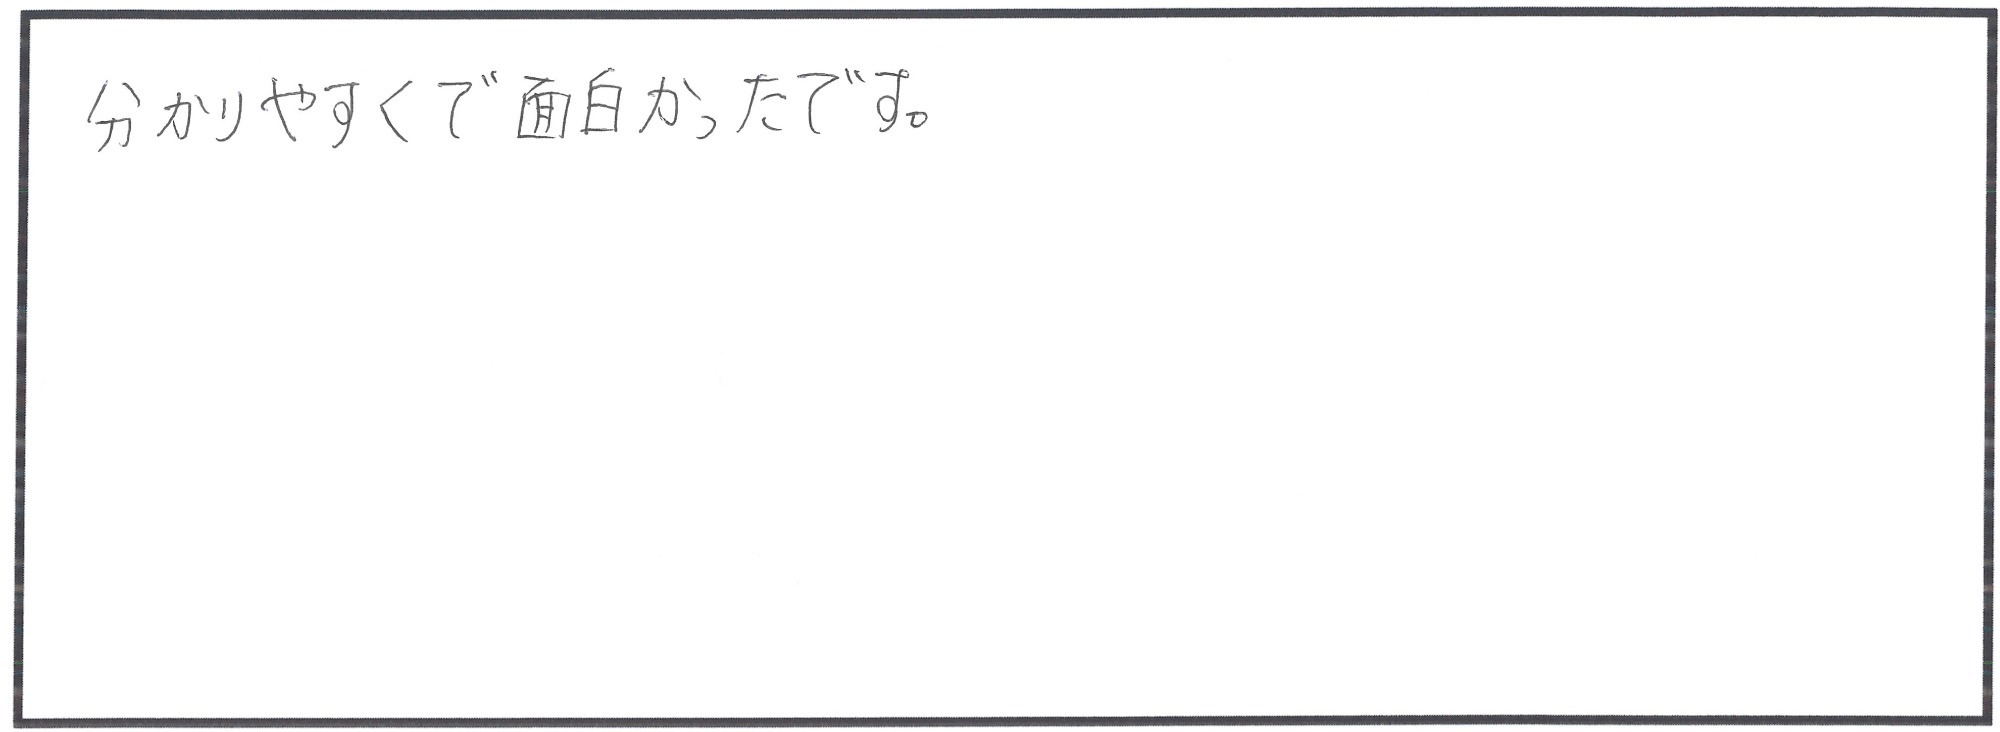 分かりやすくで面白かったです。